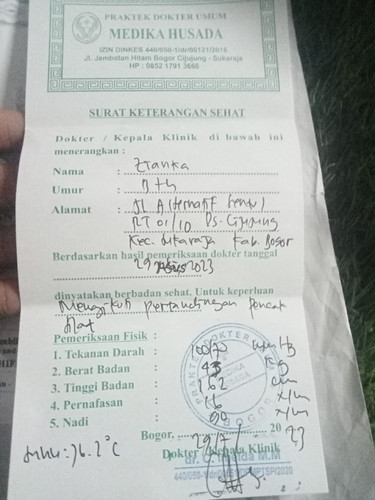 PRAKTEK DOKTER UMUM
MEDIKA HUSADA
IZIN DINKES
Jl. Jembatan Hitam Bogor Cijujung - Sukaraja
HP : 0852 1791 3660
SURAT KETERANGAN SEHAT
Dokter / Kepala Klinik di bawah ini
menerangkan :
Nama :
Umur : th
Alamat : Jl Alternatif
RT 01/10 Ds. Cijujung
Kec. Sukaraja Kab. Bogor
Berdasarkan hasil pemeriksaan dokter tanggal
29 2023
dinyatakan berbadan sehat. Untuk keperluan
Mengikuti pertandingan Pencak
Silat
Pemeriksaan Fisik :
1. Tekanan Darah : 100/70 mmHg
2. Berat Badan : 43 Kg
3. Tinggi Badan : 162 cm
4. Pernafasan : 16 x/m
5. Nadi : x/m
Bogor, 29/7 20 23
Suhu : 36.2°C
Dokter / Kepala Klinik